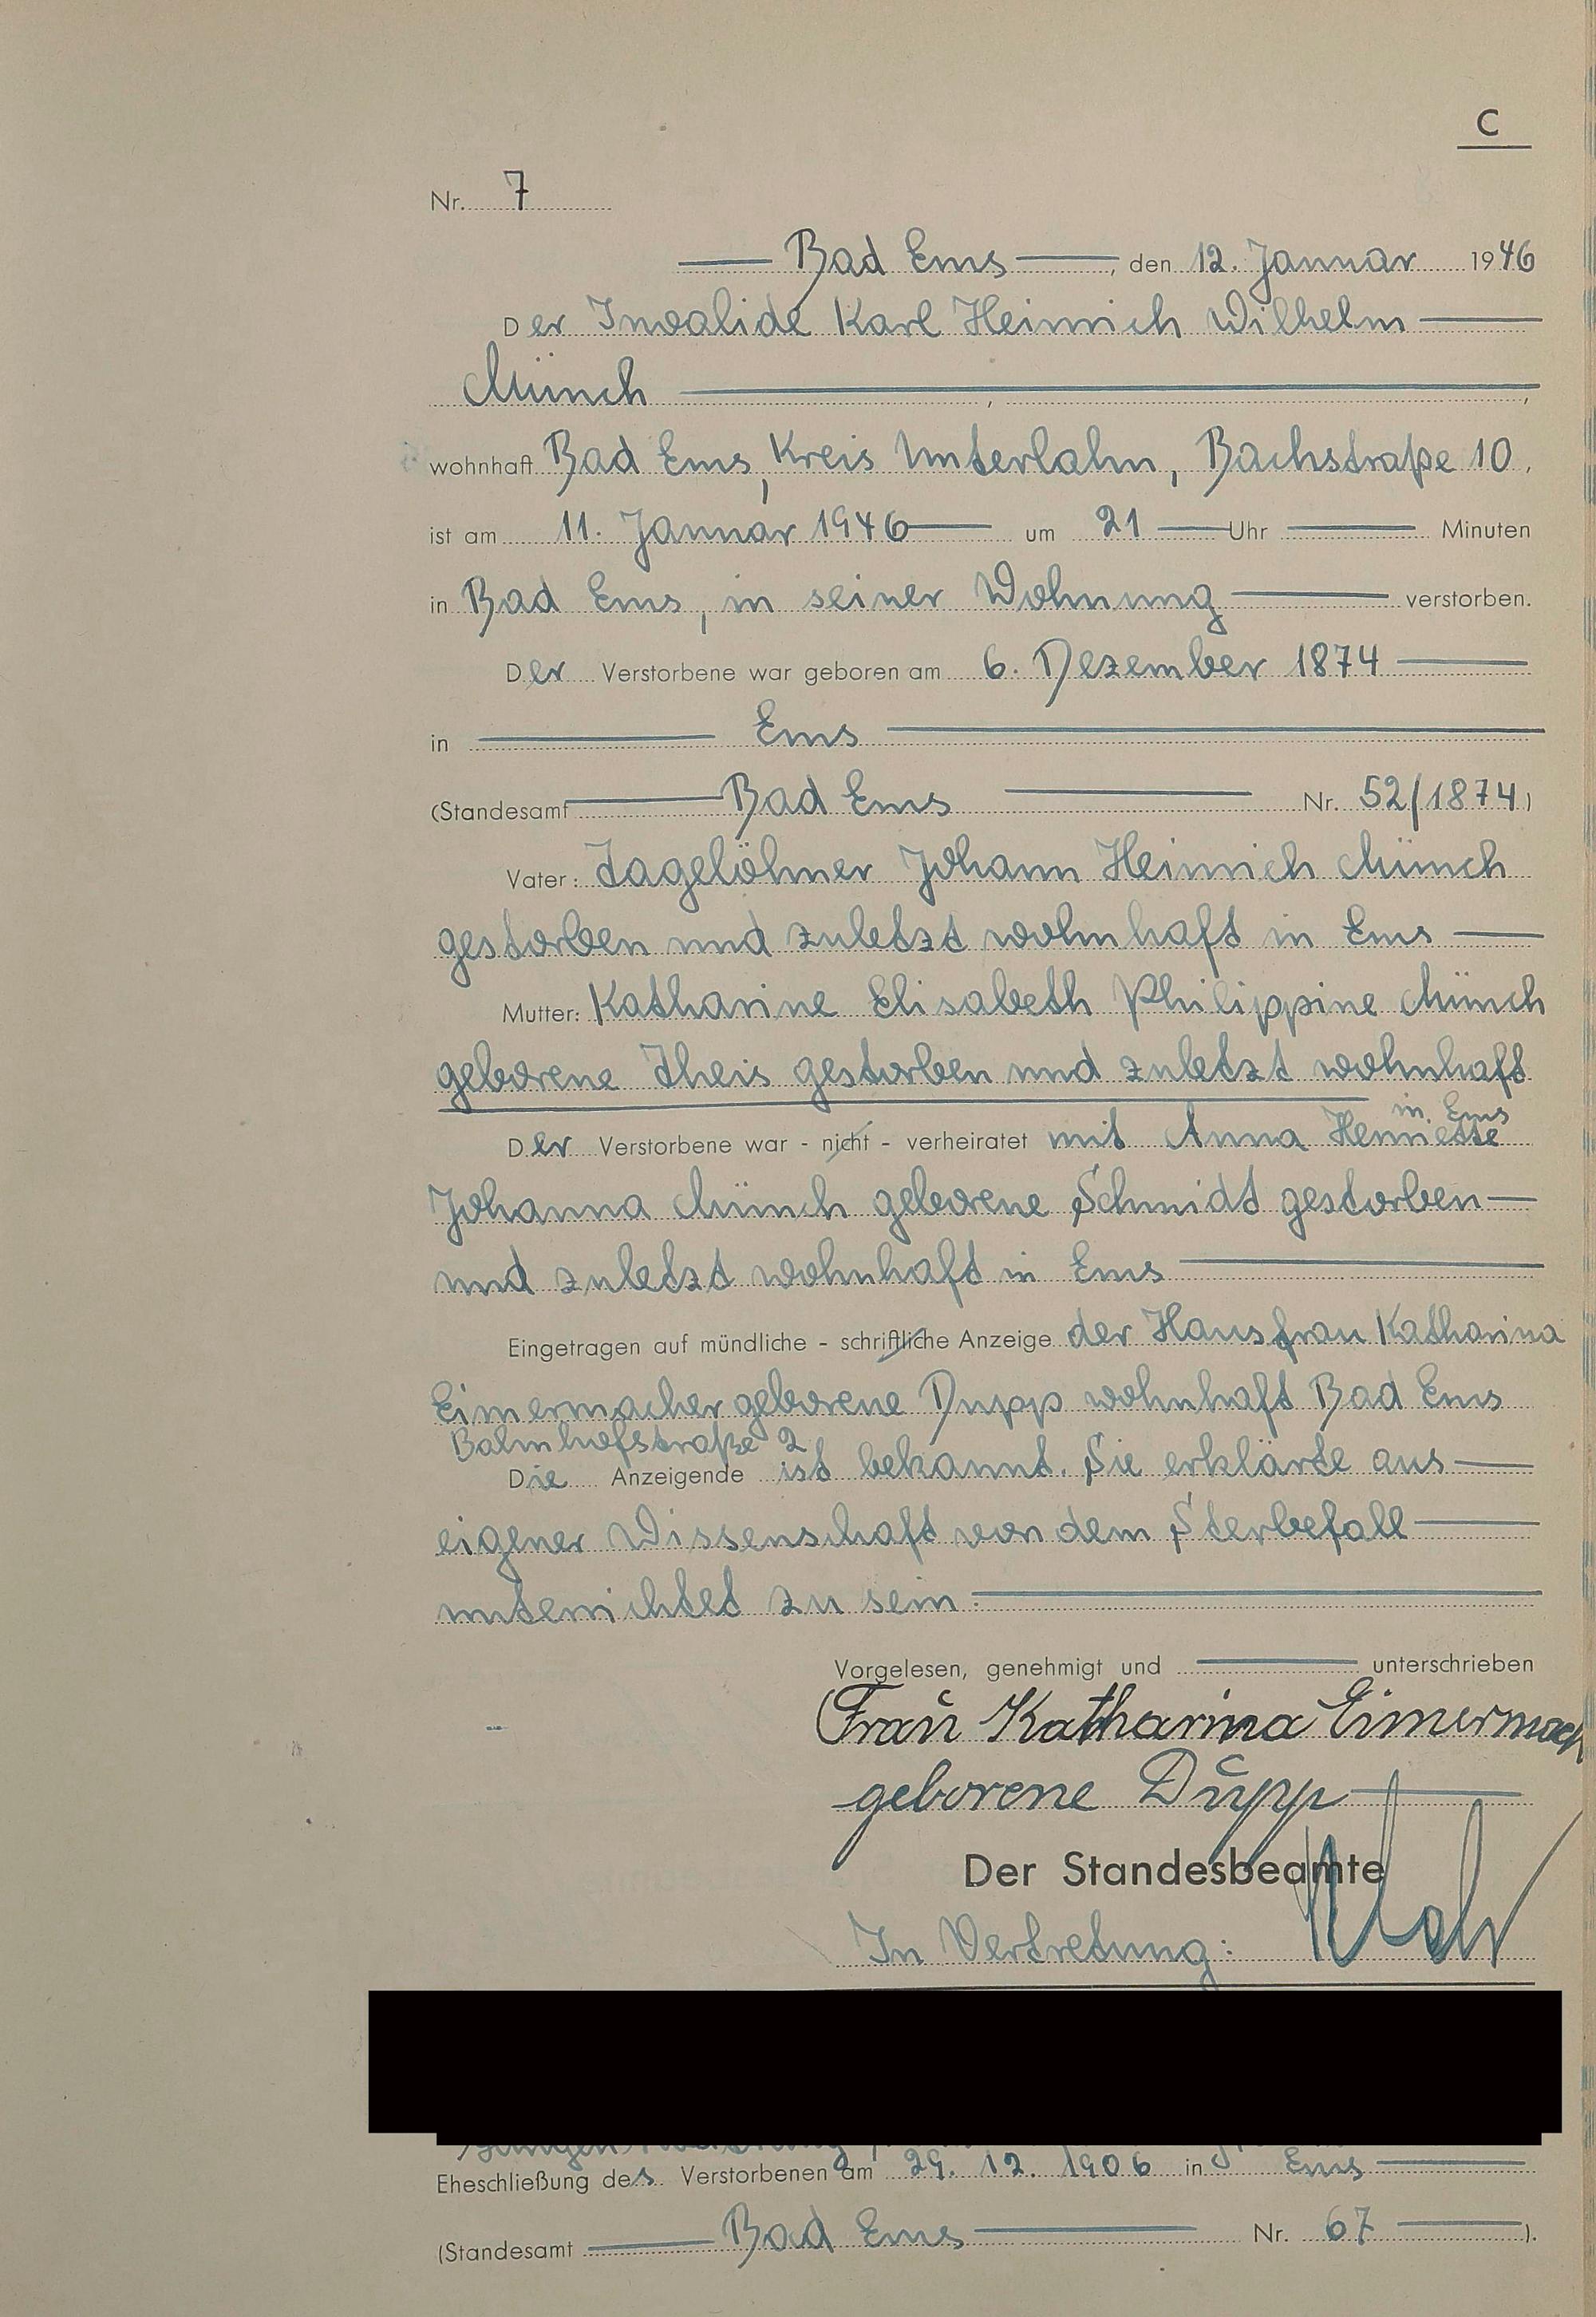 C
Nr. 7
Bad Ems, den 12. Januar 1946
Der Invalide Karl Heinrich Wilhelm
Münch
wohnhaft Bad Ems, Kreis Unterlahn, Bachstraße 10,
ist am 11. Januar 1946 um 21 Uhr Minuten
in Bad Ems, in seiner Wohnung verstorben.
Der Verstorbene war geboren am 6. Dezember 1874
in Ems
(Standesamt Bad Ems Nr. 52/1874)
Vater: Tagelöhner Johann Heinrich Münch
gestorben und zuletzt wohnhaft in Ems
Mutter: Katharine Elisabeth Philippine Münch
geborene Theis gestorben und zuletzt wohnhaft
in Ems
Der Verstorbene war - nicht - verheiratet mit Anna Henriette
Johanna Münch geborene Schmidt gestorben
und zuletzt wohnhaft in Ems
Eingetragen auf mündliche - schriftliche Anzeige der Hausfrau Katharina
Eimermacher geborene Dupp wohnhaft Bad Ems
Bahnhofstraße 2
Die Anzeigende ist bekannt. Sie erklärte aus
eigener Wissenschaft von dem Sterbefall
unterrichtet zu sein.
Vorgelesen, genehmigt und unterschrieben
Frau Katharina Eimermach
geborene Dupp
Der Standesbeamte
In Vertretung:
Eheschließung des Verstorbenen am 29. 12. 1906 in Ems
(Standesamt Bad Ems Nr. 67).